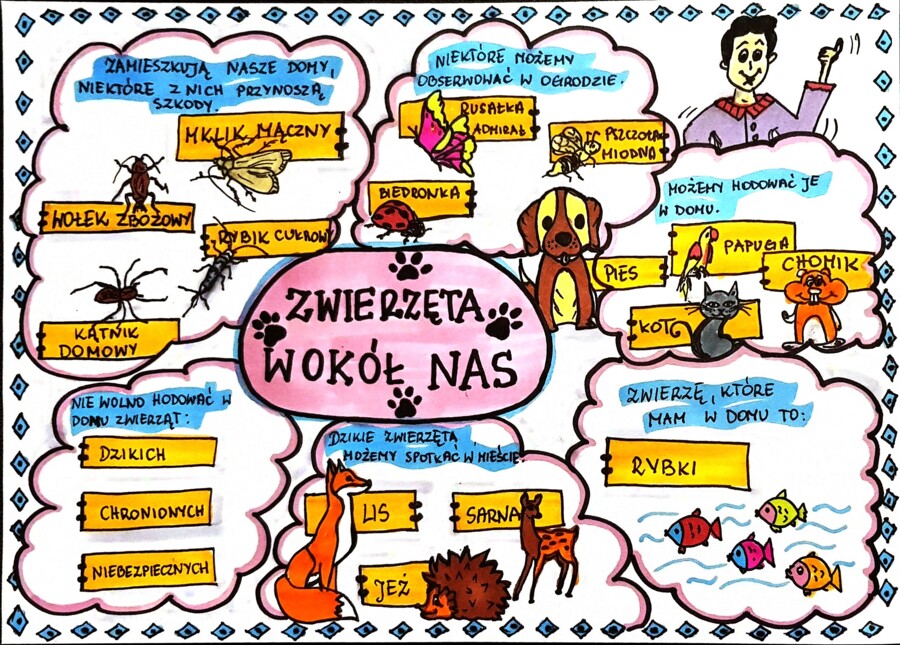 ZAMIESZKUJĄ NASZE DOMY,
NIEKTÓRE Z NICH PRZYNOSZĄ
SZKODY.
MKLIK MĄCZNY
WOŁEK ZBOŻOWY
RYBIK CUKROWY
KĄTNIK
DOMOWY
NIEKTÓRE MOŻEMY
OBSERWOWAĆ W OGRODZIE.
RUSAŁKA
ADMIRAŁ
PSZCZOŁA
MIODNA
BIEDRONKA
MOŻEMY HODOWAĆ JE
W DOMU.
PAPUGA
CHOMIK
PIES
KOT
ZWIERZĘTA
WOKÓŁ NAS
NIE WOLNO HODOWAĆ W
DOMU ZWIERZĄT:
DZIKICH
CHRONIONYCH
NIEBEZPIECZNYCH
DZIKIE ZWIERZĘTA
MOŻEMY SPOTKAĆ W MIEŚCIE.
LIS
SARNA
JEŻ
ZWIERZĘ, KTÓRE
MAM W DOMU TO:
RYBKI